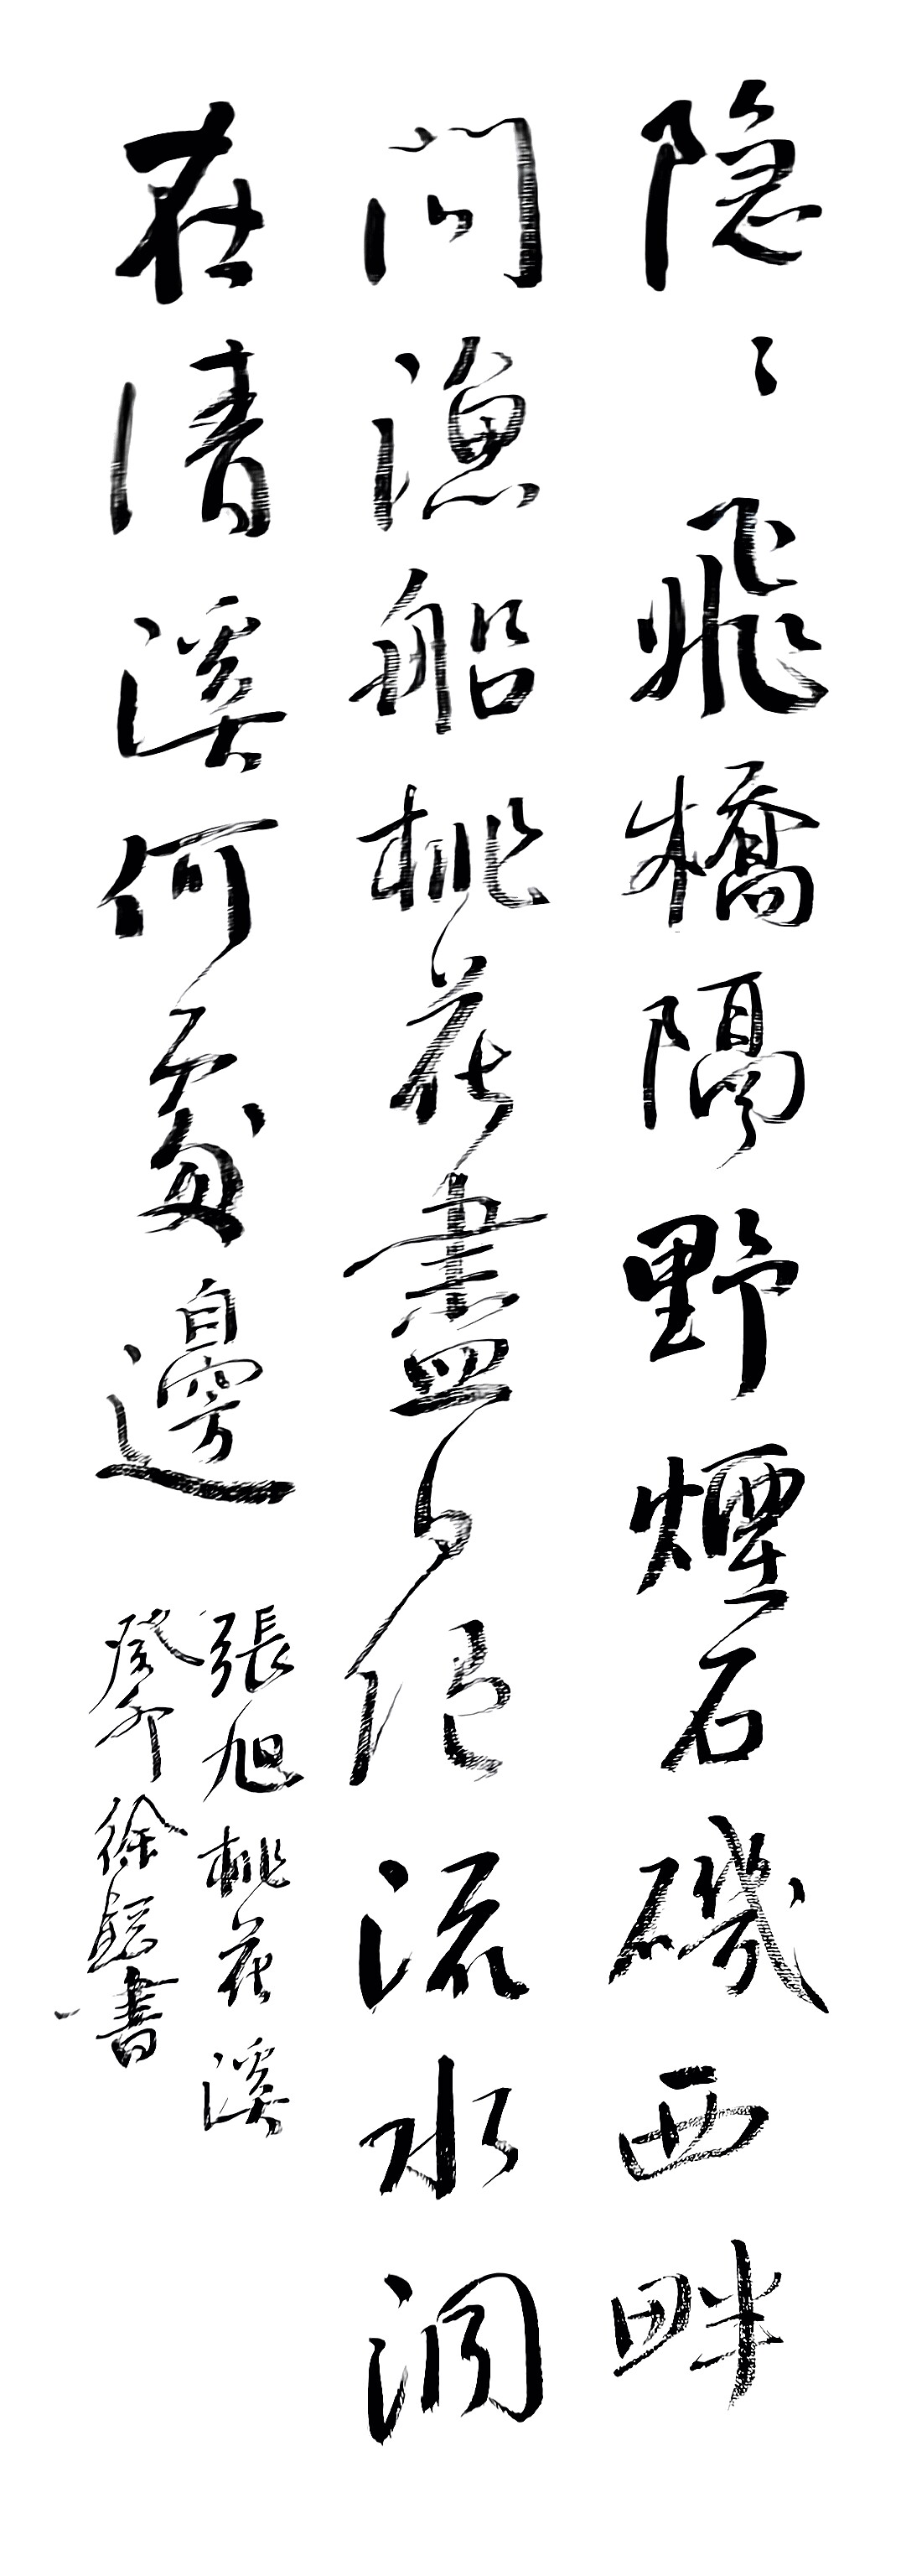 隐〻飛橋隔野煙石磯西畔
問漁船桃花盡日随流水洞
在清溪何處邊
張旭桃花溪
癸卯徐書